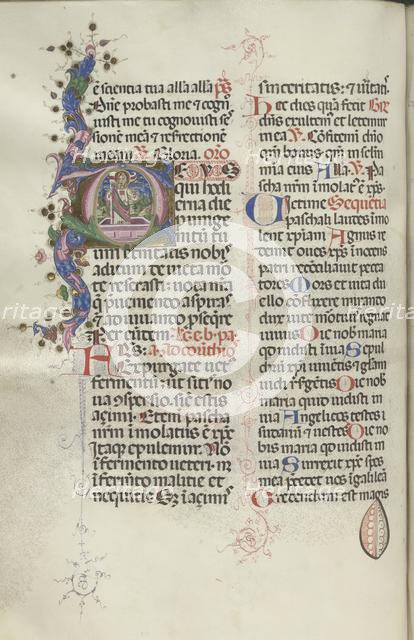 ẽ scientia tua alla alla p̃s
Dñe probasti me ⁊ cogno
uisti me tu cognouisti se
ssionẽ meã ⁊ resurrectionẽ
meam. V. Gloria. oro
EVS
qui hodi
erna die
p unige
nitũ tu
um eternitatis nobis
aditum deuicta mo
te reserasti: uota nr̃a
que p̃ueniendo aspiras
etiam adiuuando p̃sequere
Per eũdem.
Expurgate uetus
fermentũ: ut sitis no
ua ↄspersio: sic̃ estis
açimi. Etenim pascha
nr̃m imolatus ẽ xp̃s
Itaqʒ epulemur. No
in fermento ueteri: nec
in fermẽto malitie et
nequitie: Sʒ in açimis
sinceritatis: ⁊ ueritatis
Hec dies quã fecit
dñs exultem̃ et letemur
in ea V. Cõfitemĩ dño
qm̃ bonus: qm̃ in sclm̃
mĩa eius Alla V. Pa
scha nr̃m imolatʹ ẽ xp̃s
Victime Sequẽtia
paschali laudes imo
lent xp̃iani Agnus re
demit oues xp̃s inocens
patri recõciliauit pecca
tores Mors et uita du
ello cõflixere mirando
dux uite mortuʹ regnat
uiuus Dic nob maria
qd uidisti in uia Sepul
chrũ xp̃i uiuẽtis ⁊ glam̃
uidi resurgẽtis Dic nob
maria quid uidisti in
uia Angelicos testes
sudariũ ⁊ uestes Dic no
bis maria qd uidisti in
uia Surrexit xp̃s spes
mea precedet uos ĩ galilea
Credendum est magis